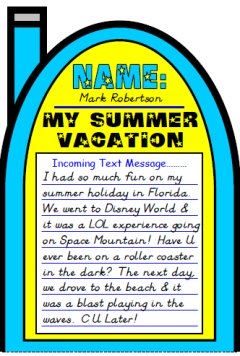 NAME:
Mark Robertson
MY SUMMER
VACATION
Incoming Text Message.........
I had so much fun on my
summer holiday in Florida.
We went to Disney World &
it was a LOL experience going
on Space Mountain! Have U
ever been on a roller coaster
in the dark? The next day,
we drove to the beach & it
was a blast playing in the
waves. C U Later!